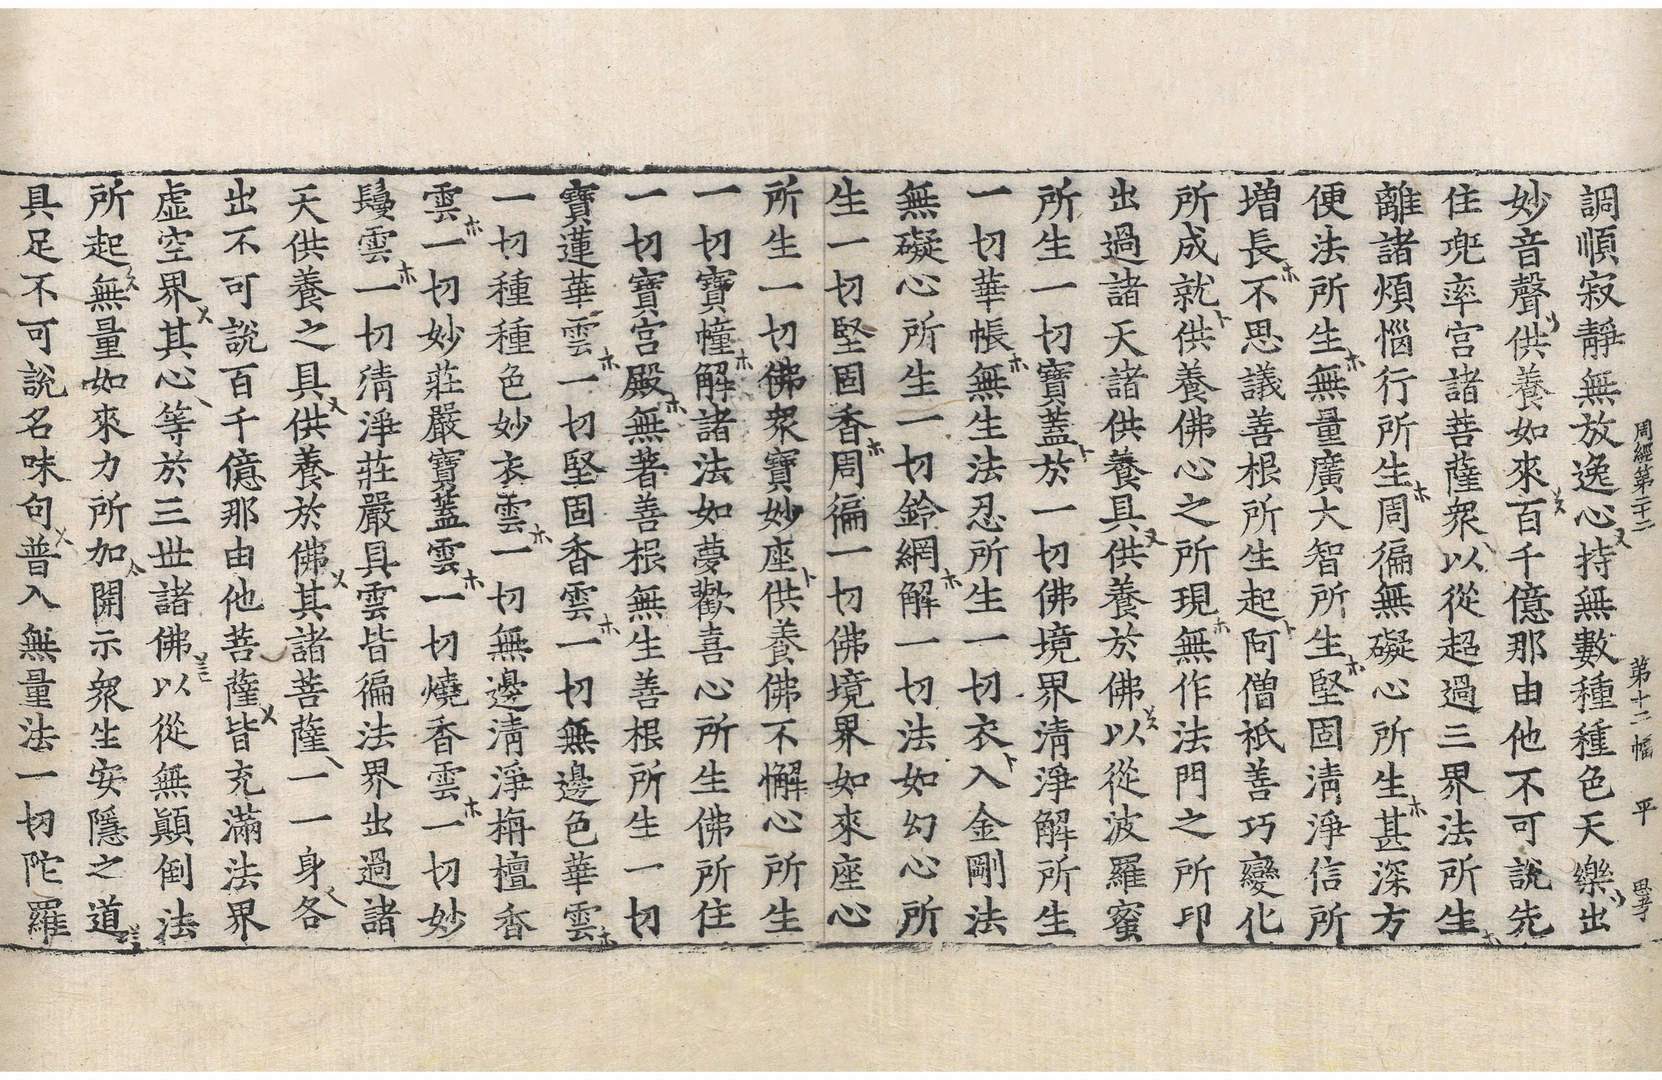 調順寂靜無放逸心持無數種種色天樂出
妙音聲供養如來百千億那由他不可說先
住兜率宮諸菩薩衆以從超過三界法所生
離諸煩惱行所生周徧無礙心所生甚深方
便法所生無量廣大智所生堅固清淨信所
增長不思議善根所生起阿僧祇善巧變化
所成就供養佛心之所現無作法門之所印
出過諸天諸供養具供養於佛以從波羅蜜
所生一切寶蓋於一切佛境界清淨解所生
一切華帳無生法忍所生一切衣入金剛法
無礙心所生一切鈴網解一切法如幻心所
生一切堅固香周徧一切佛境界如來座心
所生一切佛衆寶妙座供養佛不懈心所生
一切寶幢解諸法如夢歡喜心所生佛所住
一切寶宮殿無著善根無生善根所生一切
寶蓮華雲一切堅固香雲一切無邊色華雲
一切種種色妙衣雲一切無邊清淨栴檀香
雲一切妙莊嚴寶蓋雲一切燒香雲一切妙
鬘雲一切清淨莊嚴具雲皆徧法界出過諸
天供養之具供養於佛其諸菩薩一一身各
出不可說百千億那由他菩薩皆充滿法界
虛空界其心等於三世諸佛以從無顚倒法
所起無量如來力所加開示衆生安隱之道
具足不可說名味句普入無量法一切陀羅
周經第二十二 第十二幅 平